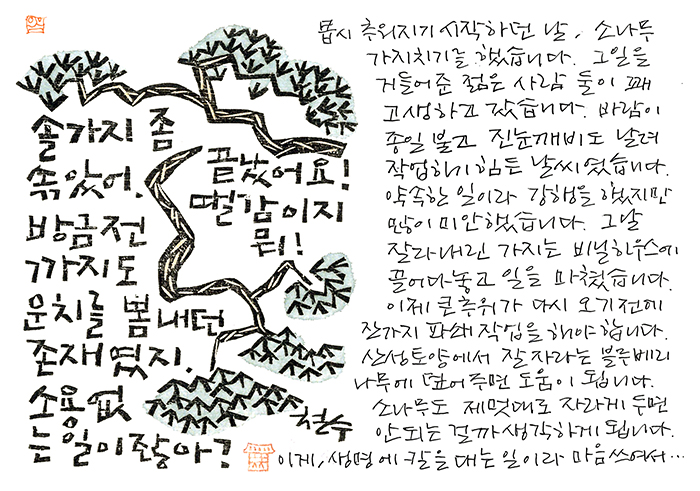 솔가지 좀
솎았어.
방금전
까지도
운치를 봄내던
존재였지.
소용없
는 일이잖아?
끝났어요!
땔감이지
뭐!
철수
몹시 추워지기 시작하던 날, 소나무
가지치기를 했습니다. 그일을
거들어준 젊은 사람 둘이 꽤
고생하고 갔습니다. 바람이
종일 불고 진눈깨비도 날려
작업하기 힘든 날씨였습니다.
약속한 일이라 강행을 했지만
많이 미안했습니다. 그날
잘라내린 가지는 비닐하우스에
끌어다놓고 일을 마쳤습니다.
이제 큰추위가 다시 오기전에
잔가지 파쇄작업을 해야 합니다.
산성토양에서 잘 자라는 블루베리
나무에 덮어주면 도움이 됩니다.
소나무도 제멋대로 자라게 두면
안되는 걸까 생각하게 됩니다.
이게, 생명에 칼을 대는 일이라 마음쓰여서…